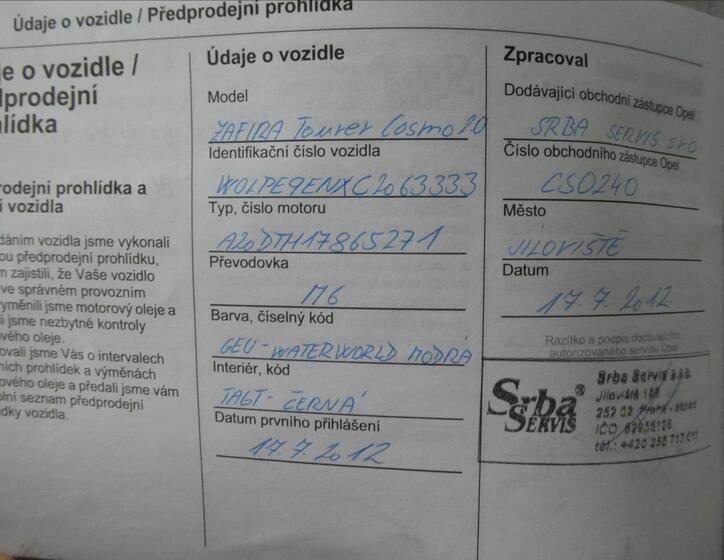 Údaje o vozidle / Předprodejní prohlídka
je o vozidle /
dprodejní
hlídka
rodejní prohlídka a
í vozidla
dáním vozidla jsme vykonali
ou předprodejní prohlídku,
m zajistili, že Vaše vozidlo
ve správném provozním
vyměnili jsme motorový olej a
i jsme nezbytné kontroly
vého oleje.
ovali jsme Vás o intervalech
ních prohlídek a výměnách
ového oleje a předali jsme vám
olní seznam předprodejní
dky vozidla.
Údaje o vozidle
Model
ZAFIRA Tourer Cosmo 2.0
Identifikační číslo vozidla
WOLPE9ENXC2063333
Typ, číslo motoru
A20DTH17865271
Převodovka
M6
Barva, číselný kód
GEU - WATERWORLD MODRÁ
Interiér, kód
TAGT - ČERNÁ
Datum prvního přihlášení
17.7.2012
Zpracoval
Dodávající obchodní zástupce Opel
SRBA SERVIS s.r.o
Číslo obchodního zástupce Opel
CS0240
Město
JÍLOVIŠTĚ
Datum
17.7.2012
Razítko a podpis dodávajícího
autorizovaného servisu Opel
Srba®
SERVIS
Srba Servis s.r.o.
Jíloviště
252 02
IČO:
tel.: +420 256 717 011